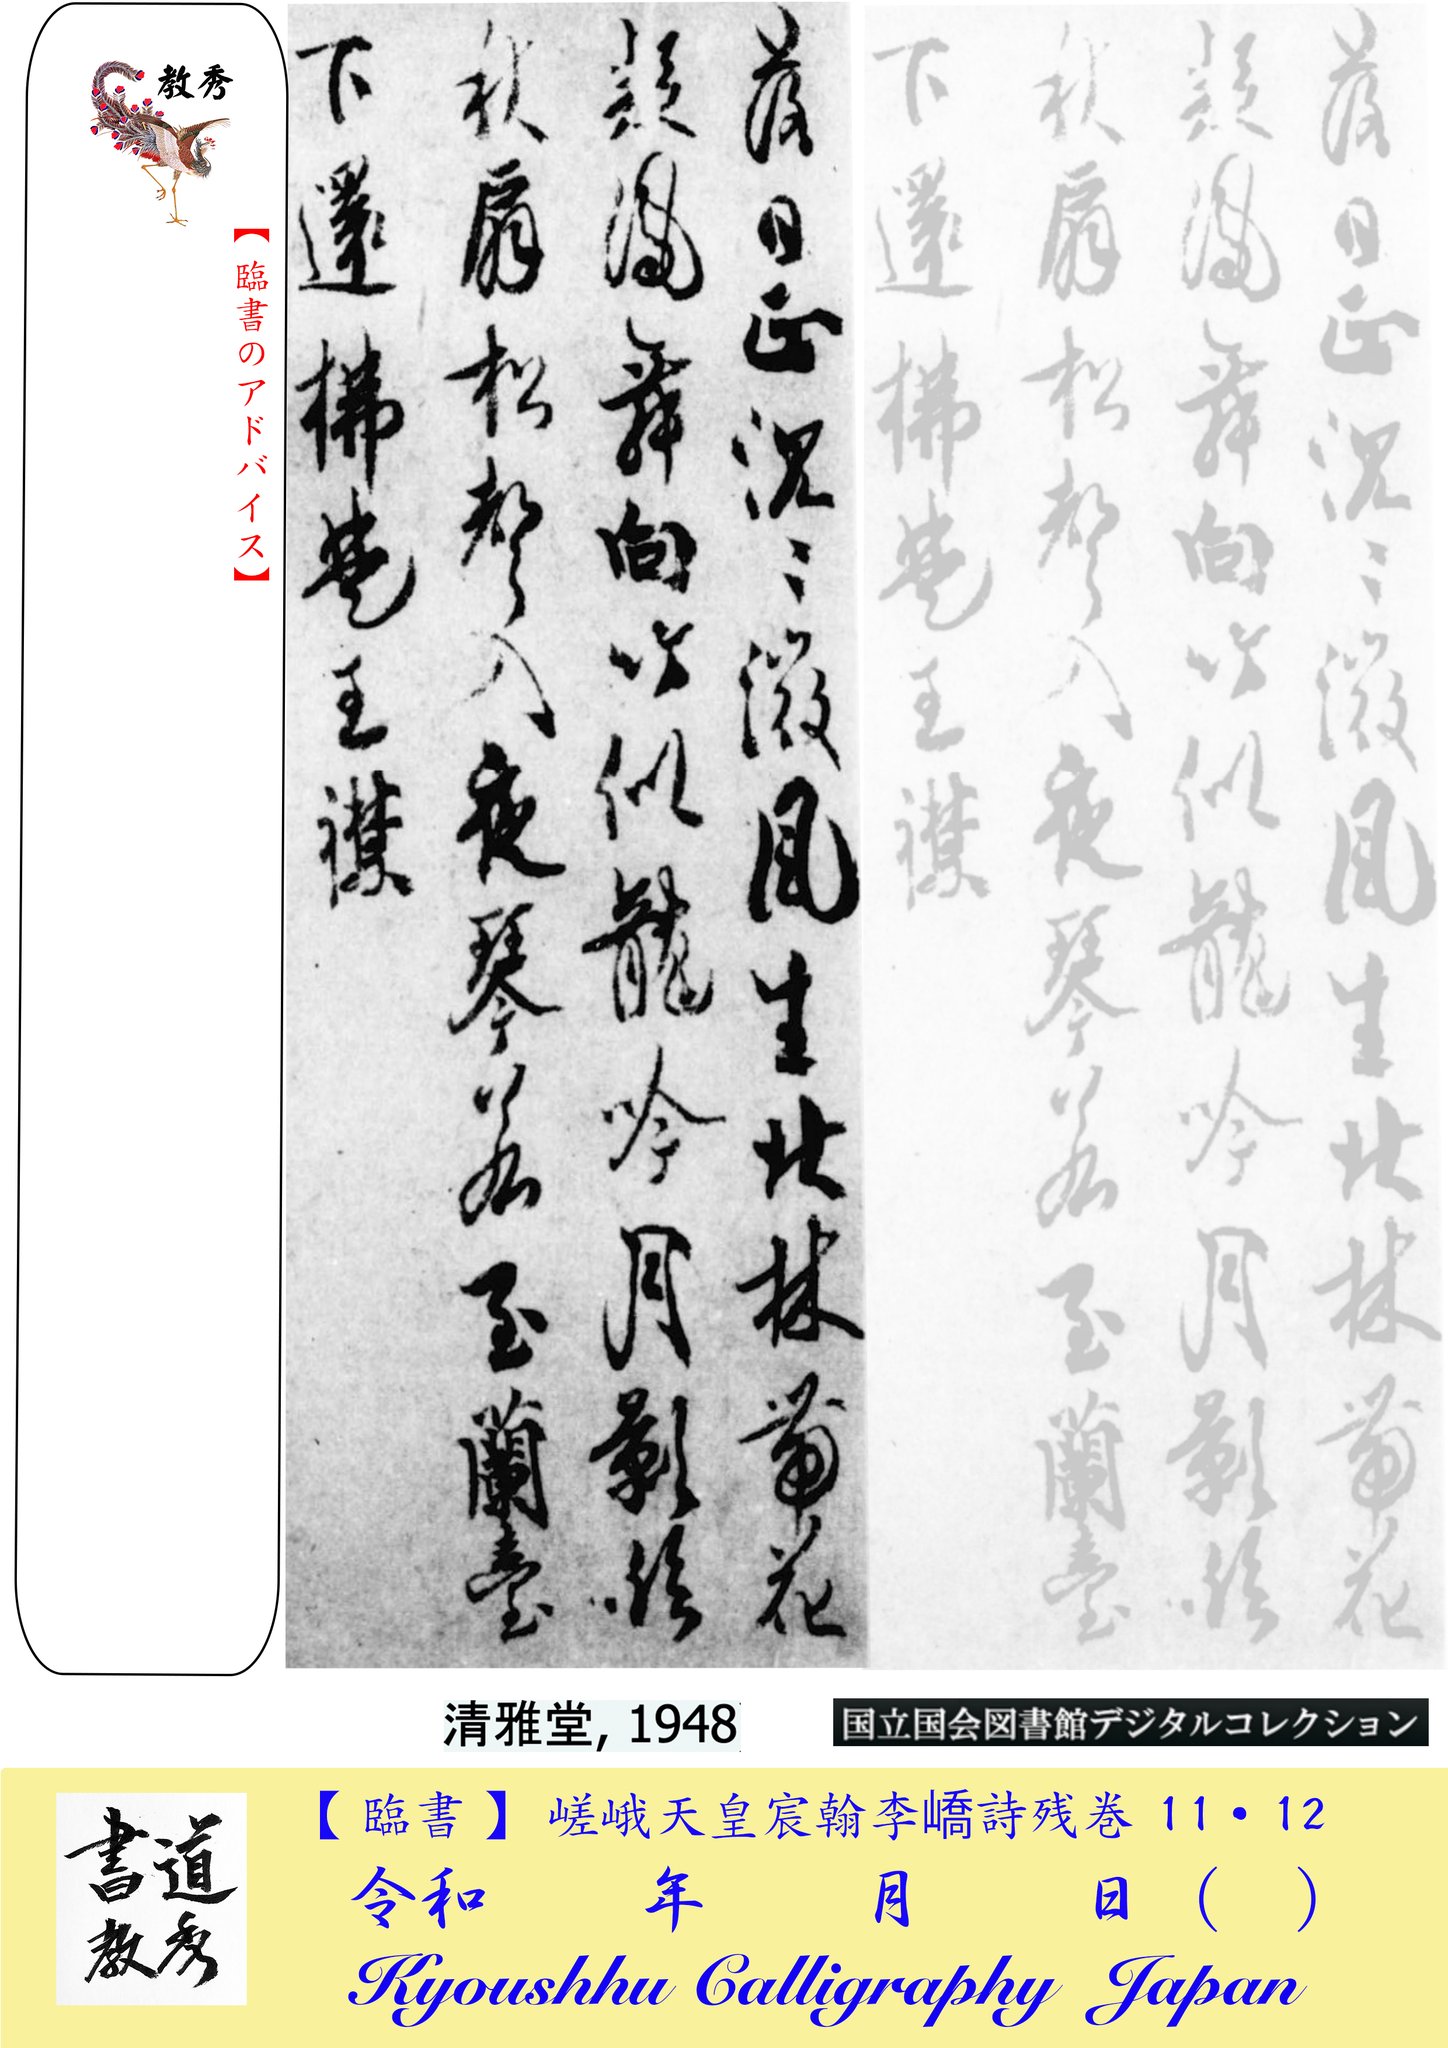 落日正沉〻微風生北林帶花
疑鳳舞向竹似龍吟月影臨
秋扇松聲入夜琴若至蘭臺
下還拂楚王襟
落日正沉〻微風生北林帶花
疑鳳舞向竹似龍吟月影臨
秋扇松聲入夜琴若至蘭臺
下還拂楚王襟
教秀
【臨書のアドバイス】
清雅堂, 1948
国立国会図書館デジタルコレクション
【 臨書 】 嵯峨天皇宸翰李嶠詩残巻 11・12
令和 年 月 日 ( )
Kyoushhu Calligraphy Japan
書道
教秀